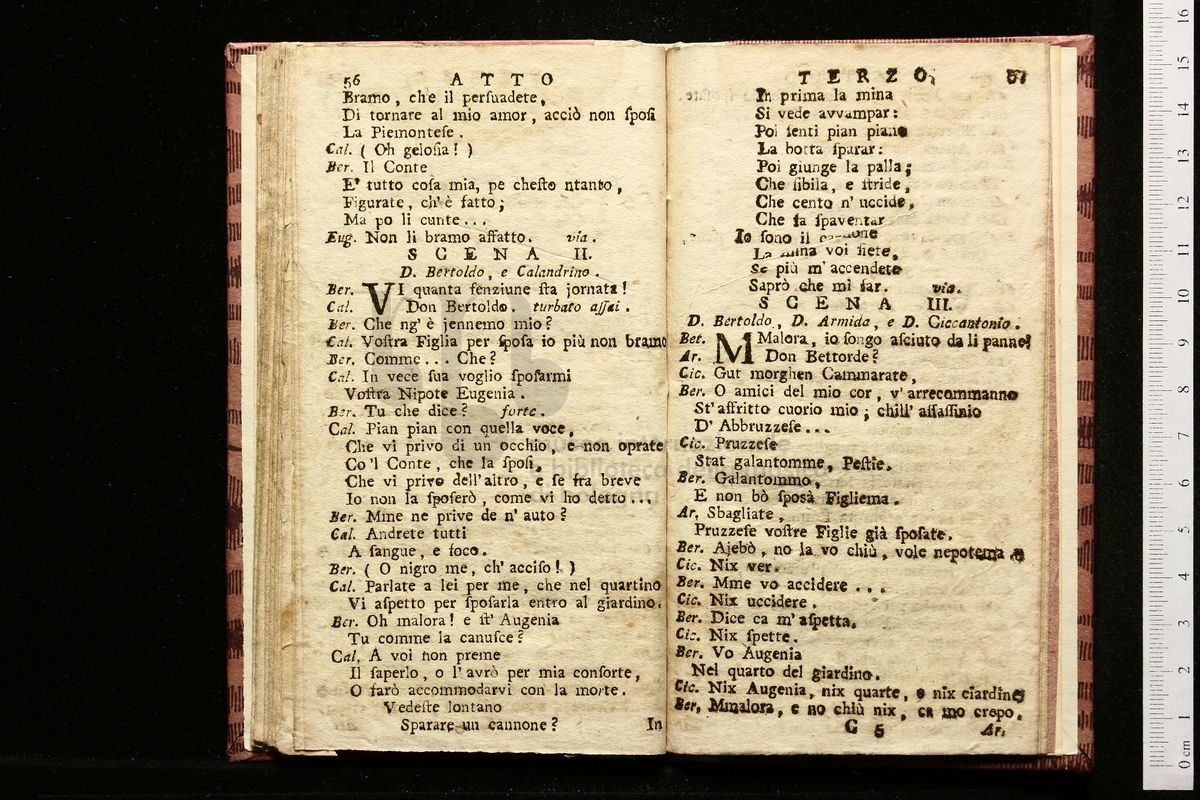 56 ATTO
Bramo, che il perſuadete,
Di tornare al mio amor, acciò non ſpoſi
La Piemonteſe.
Cal. ( Oh geloſia! )
Ber. Il Conte
E' tutto coſa mia, pe cheſto ntanto,
Figurate, ch'è fatto;
Ma po li cunte...
Eug. Non li bramo affatto. via.
SCENA II.
D. Bertoldo, e Calandrino.
Ber. VI quanta fenziune ſta jornata!
Cal. Don Bertoldo. turbato aſſai.
Ber. Che ng'è jennemo mio?
Cal. Voſtra Figlia per ſpoſa io più non bramo
Ber. Comme... Che?
Cal. In vece ſua voglio ſpoſarmi
Voſtra Nipote Eugenia.
Ber. Tu che dice? forte.
Cal. Pian pian con quella voce,
Che vi privo di un occhio, e non oprate
Co'l Conte, che la ſpoſi,
Che vi privo dell'altro, e ſe fra breve
Io non la ſpoſerò, come vi ho detto...
Ber. Mme ne prive de n'auto?
Cal. Andrete tutti
A ſangue, e foco.
Ber. ( O nigro me, ch'acciſo! )
Cal. Parlate a lei per me, che nel quartino
Vi aſpetto per ſpoſarla entro al giardino.
Ber. Oh malora! e ſt' Augenia
Tu comme la canuſce?
Cal. A voi non preme
Il ſaperlo, o l'avrò per mia conſorte,
O farò accommodarvi con la morte.
Vedeſte lontano
Sparare un cannone?
In
TERZO. 57
In prima la mina
Si vede avvampar:
Poi ſenti pian piano
La botta ſparar:
Poi giunge la palla;
Che ſibila, e ſtride,
Che cento n'uccide,
Che fa ſpaventar
Io ſono il
La mina voi ſiete,
Se più m'accendete
Saprò che mi far. via.
SCENA III.
D. Bertoldo, D. Armida, e D. Ciccantonio.
Bet. MMalora, io ſongo aſciuto da li panne!
Ar. Don Bettorde?
Cic. Gut morghen Cammarate,
Ber. O amici del mio cor, v'arrecommanno
St'affritto cuorio mio; chill'aſſaſſinio
D'Abbruzzeſe...
Cic. Pruzzeſe
Stat galantomme, Peſtie.
Ber. Galantommo,
E non bò ſposà Figliema.
Ar. Sbagliate,
Pruzzeſe voſtre Figlie già ſpoſate.
Ber. Ajebò, no la vo chiù, vole nepotema
Cic. Nix ver.
Ber. Mme vo accidere...
Cic. Nix uccidere.
Ber. Dice ca m'aſpetta.
Cic. Nix ſpette.
Ber. Vo Augenia
Nel quarto del giardino.
Cic. Nix Augenia, nix quarte, e nix ciardine
Ber. Mmalora, e no chiù nix, ca mo crepo.
C 5 Ar.